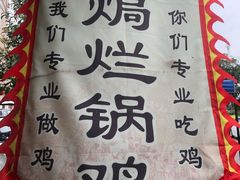 我们专业做鸡
焗烂锅鸡
你们专业吃鸡